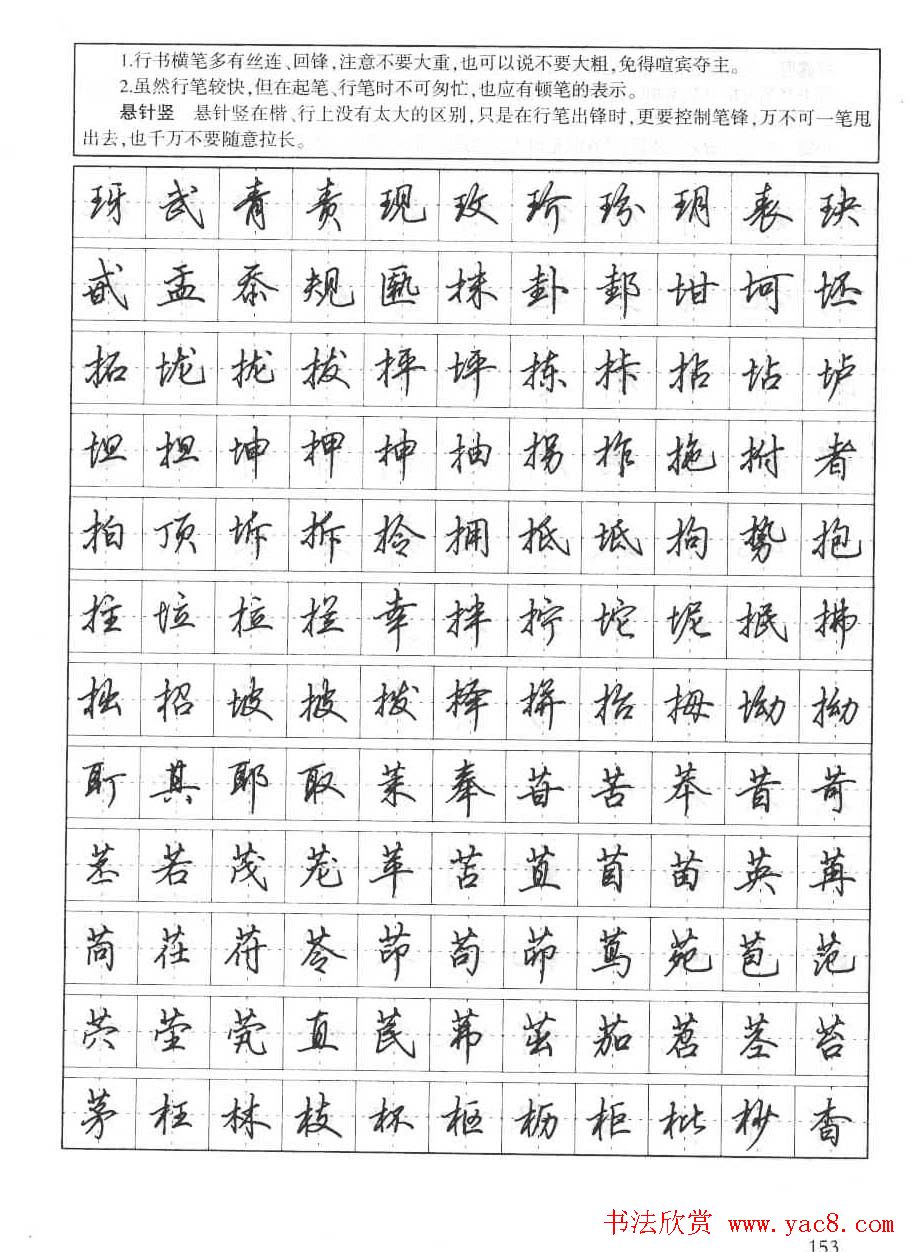 1.行书横笔多有丝连、回锋,注意不要大重,也可以说不要大粗,免得喧宾夺主。
2.虽然行笔较快,但在起笔、行笔时不可匆忙,也应有顿笔的表示。
悬针竖 悬针竖在楷、行上没有太大的区别,只是在行笔出锋时,更要控制笔锋,万不可一笔甩
出去,也千万不要随意拉长。
玡 武 青 责 现 玫 玠 玢 玥 表 玦
甙 盂 忝 规 匦 抹 卦 邽 坩 坷 坯
拓 垅 拢 拔 抨 坪 拣 拤 拈 坫 垆
坦 担 坤 押 抻 抽 拐 拃 拖 拊 者
拍 顶 坼 拆 拎 拥 抵 坻 拘 势 抱
拄 垃 拉 拦 幸 拌 拧 坨 坭 抿 拂
拙 招 坡 披 拨 择 拚 抬 拇 坳 拗
耵 其 耶 取 茉 奉 苷 苦 苯 昔 苛
苤 若 茂 茏 苹 苫 苴 苜 苗 英 苒
苘 茌 苻 苓 茚 苟 茆 茑 苑 苞 范
茓 茔 茕 直 苠 茀 茁 茄 苕 茎 苔
茅 枉 林 枝 杯 枢 枥 柜 枇 杪 杳
书法欣赏 www.yac8.com
153